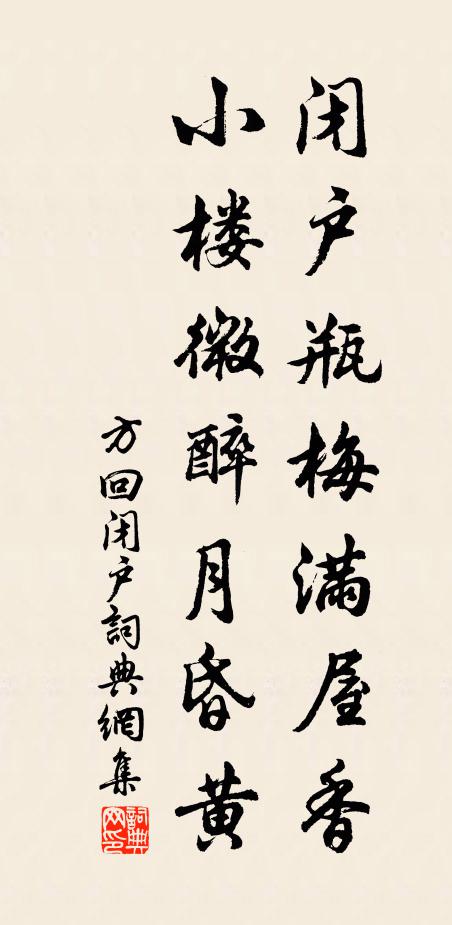 闭户瓶梅满屋香
小楼微醉月昏黄
方回闭户詞典網集
詞典网印